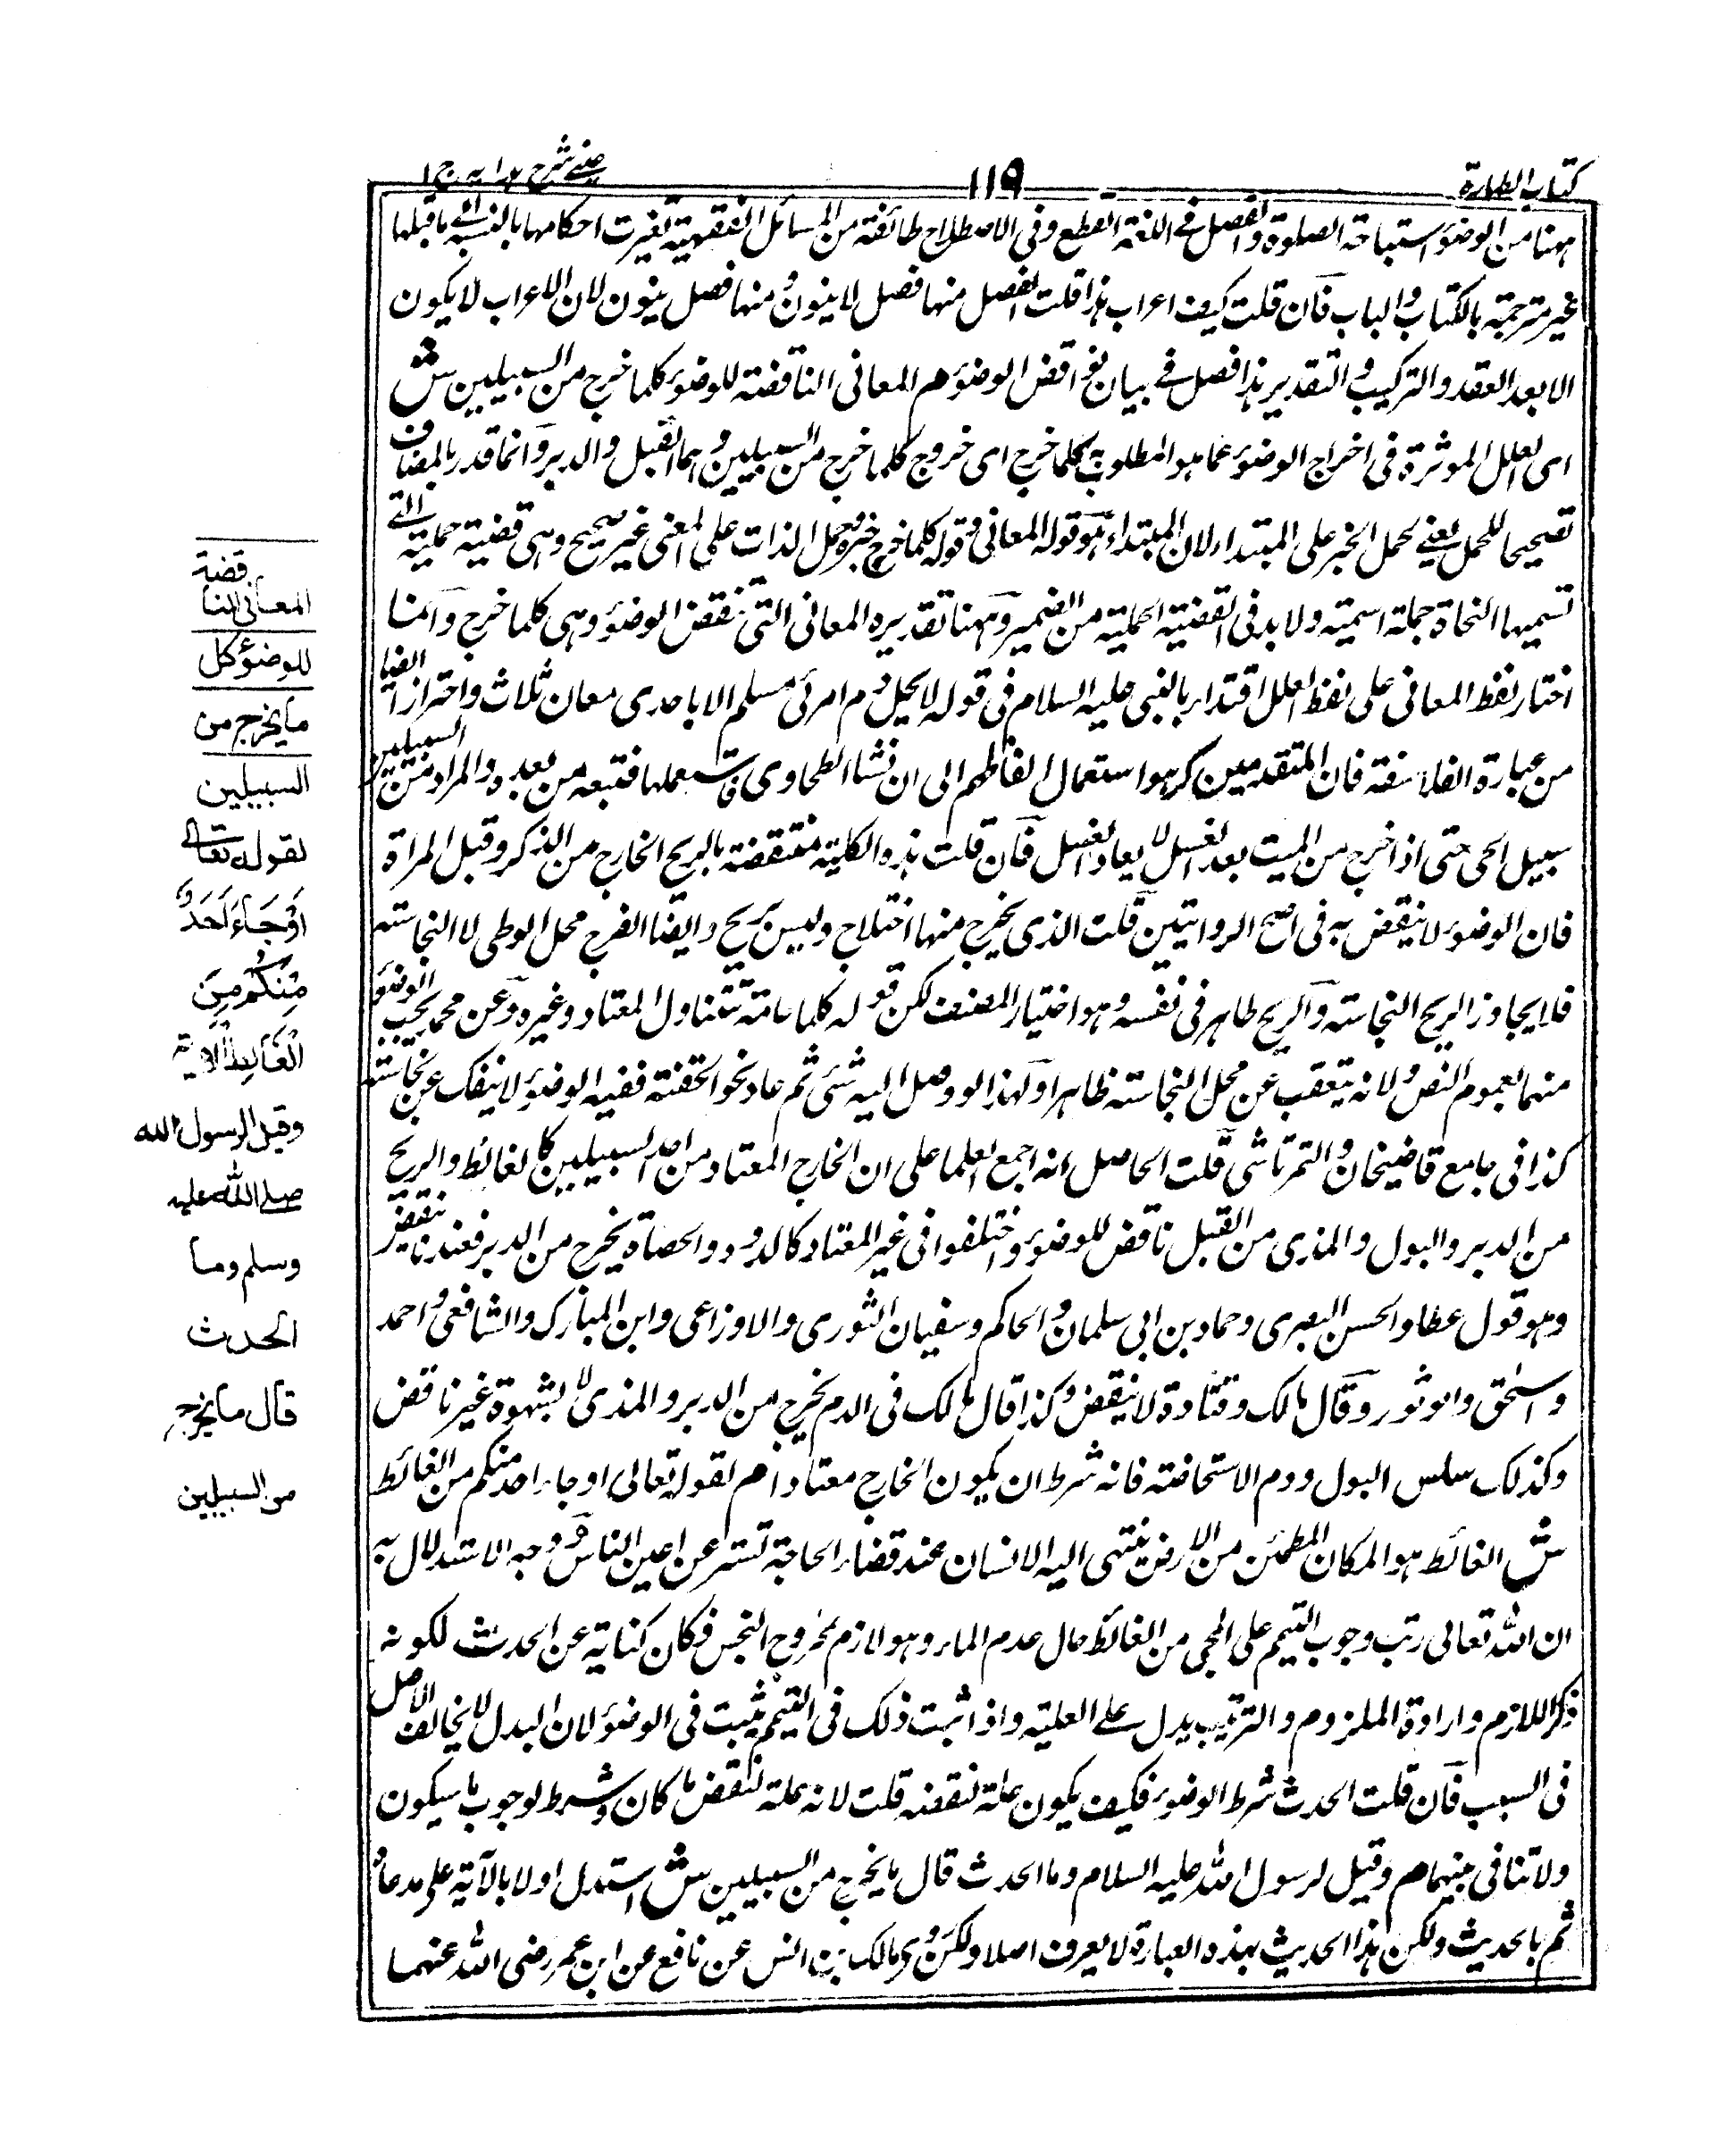 كتاب الطهارة
١١٩
عيني شرح هدايه ج ١
ههنا من الوضوء استباحة الصلوة والفصل في اللغة القطع وفي الاصطلاح طائفة من المسائل الفقهية تغيرت احكامها بالنسبة الى ما قبلها
غير مترجمة بالكتاب والباب فان قلت كيف اعراب هذا قلت الفصل منها فصل لا ينون ومنها فصل ينون لان الاعراب لا يكون
الا بعد العقد والتركيب والتقدير هذا فصل في بيان نواقض الوضوء م المعاني الناقضة للوضوء كلما خرج من السبيلين ش
اى العلل الموثرة فى اخراج الوضوء عما هو المطلوب به كلما خرج اى خروج كلما خرج من السبيلين وهما القبل والدبر وانما قدر بالمضاف
تصحيحا للحمل يعني لحمل الخبر على المبتداء لان المبتداء هو قوله المعاني وقوله كلما خرج خبره وحمل الذات على المعنى غير صحيح وهى قضية حملية التي
تسميها النحاة جملة اسمية ولا بد فى القضية الحملية من الضمير وههنا تقديره المعانى التي تنقض الوضوء وهى كلما خرج وانما
اختار لفظ المعانى على لفظ العلل اقتداء بالنبى عليه السلام فى قوله لا يحل دم امرئ مسلم الا باحدى معان ثلاث واحترازا ايضا
من عبارة الفلاسفة فان المتقدمين كرهوا استعمال الفاظهم الى ان نشا الطحاوى فاستعملها فتبعه من بعده والمراد من السبيلين
سبيل الحى حتى اذا خرج من الميت بعد الغسل لا يعاد الغسل فان قلت هذه الكلية منتقضة بالريح الخارج من الذكر وقبل المراة
فان الوضوء لا ينقض به فى اصح الروايتين قلت الذى يخرج منها اختلاج وليس بريح وايضا الفرج محل الوطى لا النجاسة
فلا يجاوز الريح النجاسة والريح طاهر فى نفسه وهو اختيار المصنف لكن قوله كلما عامة تتناول المعتاد وغيره وعن محمد يجب الوضوء
منهما لعموم النص ولانه يتعقب عن محل النجاسة ظاهرا ولهذا لو وصل اليه شئ ثم عاد نحو الحقنة ففيه الوضوء لا ينفك عن نجاسة
كذا فى جامع قاضيخان والتمرتاشى قلت الحاصل انه اجمع العلما على ان الخارج المعتاد من احد السبيلين كالغائط والريح
من الدبر والبول والمذى من القبل ناقض للوضوء واختلفوا فى غير المعتاد كالدود والحصاة يخرج من الدبر فعندنا ينقض
وهو قول عطا والحسن البصرى وحماد بن ابى سلمان والحاكم وسفيان الثورى والاوزاعى وابن المبارك والشافعى واحمد
واسحق وابو ثور وقال مالك وقتادة لا ينقض وكذا قال مالك فى الدم يخرج من الدبر والمذى لا لشهوة غير ناقض
وكذلك سلس البول ودم الاستحاضة فانه شرط ان يكون الخارج معتادا م لقوله تعالى او جاء احد منكم من الغائط
ش الغائط هو المكان المطمئن من الارض ينتهى اليه الانسان عند قضاء الحاجة تستر عن اعين الناس ووجه الاستدلال به
ان الله تعالى رتب وجوب التيمم على المجى من الغائط حال عدم الماء وهو لازم لخروج النجس فكان كناية عن الحدث لكونه
ذكر اللازم وارادة الملزوم والترتيب يدل على العلية واذا ثبت ذلك فى التيمم يثبت فى الوضوء لان البدل لا يخالف الاصل
فى السبب فان قلت الحدث شرط الوضوء فكيف يكون علة لنقضه قلت لانه علة لنقض ما كان وشرط لوجوب ما سيكون
ولا تنافى بينهما م وقيل لرسول الله عليه السلام وما الحدث قال ما يخرج من السبيلين ش استدل اولا بالآية على مدعاه
ثم بالحديث ولكن هذا الحديث بهذه العبارة لا يعرف اصلا ولكن روى مالك بن انس عن نافع عن ابن عمر رضى الله عنهما
قضة
المعانى النا
للوضوء كل
ما يخرج من
السبيلين
لقوله تعالى
اَوْ جَاءَ اَحَدٌ
مِنْكُمْ مِنَ
الْغَائِطِ الاية
وقيل لرسول الله
صلى الله عليه
وسلم وما
الحدث
قال ما يخرج
من السبيلين